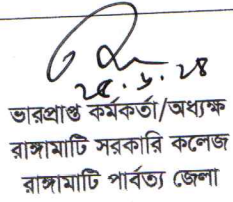 ২৫.৮.২৪
ভারপ্রাপ্ত কর্মকর্তা/অধ্যক্ষ
রাঙ্গামাটি সরকারি কলেজ
রাঙ্গামাটি পার্বত্য জেলা